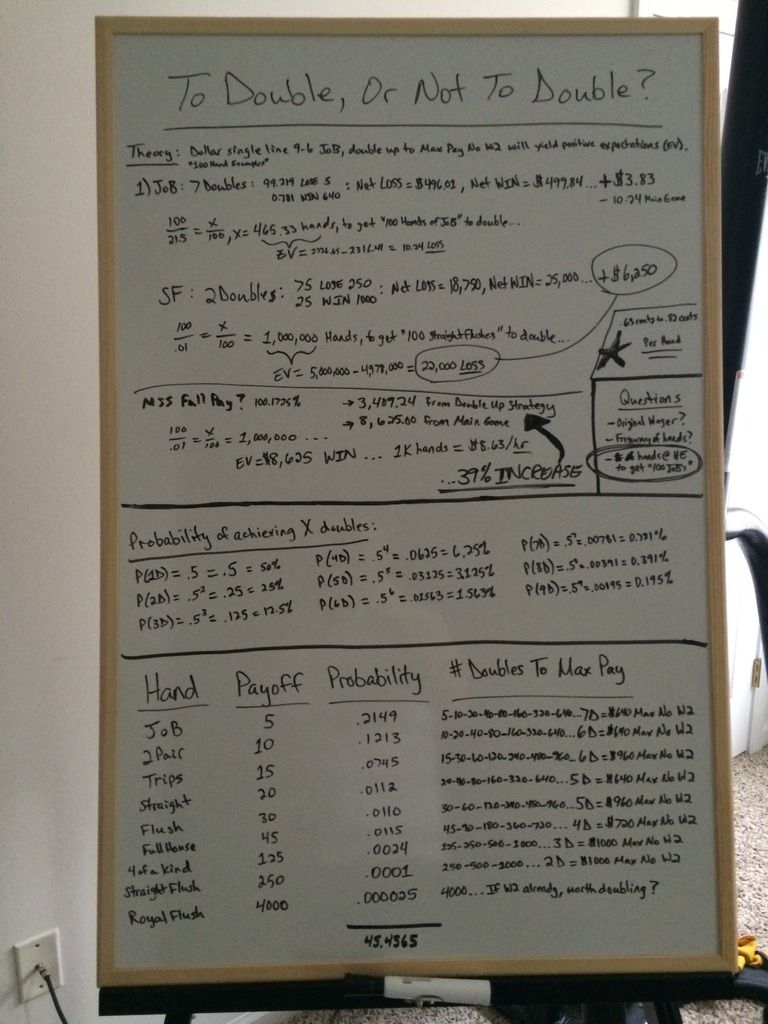 To Double, Or Not To Double?
Theory: Dollar single line 9-6 JoB, double up to Max Pay No W2 will yield positive expectations (EV).
"100 Hand Examples"
1) JoB: 7 Doubles: 99.219 LOSE 5 : Net Loss = $496.01, Net WIN = $499.84... +$3.83
0.781 WIN 640
- 10.24 Main Game
100/21.5 = x/100, x = 465.33 hands, to get "100 Hands of JoB" to double...
EV = 2326.65 - 2316.41 = 10.24 LOSS
SF: 2 Doubles: 75 LOSE 250 : Net Loss = 18,750, Net WIN = 25,000... +$6,250
25 WIN 1000
100/.01 = x/100 = 1,000,000 Hands, to get "100 Straight Flushes" to double...
EV = 5,000,000 - 4,978,000 = 22,000 LOSS
.63 cents to .82 cents
Per Hand
MSS Fall Pay? 100.1725%
→ 3,407.24 from Double Up Strategy
→ 8,625.00 from Main Game
100/.01 = x/100 = 1,000,000 ...
EV = $8,625 WIN ... 1K hands = $8.63/hr
...39% INCREASE
Questions
- Original Wager?
- Frequency of hands?
- # hands @ HE
to get "100 JoB's"
Probability of achieving X doubles:
P(1D) = .5 = .5 = 50%
P(2D) = .5² = .25 = 25%
P(3D) = .5³ = .125 = 12.5%
P(4D) = .5⁴ = .0625 = 6.25%
P(5D) = .5⁵ = .03125 = 3.125%
P(6D) = .5⁶ = .01563 = 1.563%
P(7D) = .5⁷ = .00781 = 0.781%
P(8D) = .5⁸ = .00391 = 0.391%
P(9D) = .5⁹ = .00195 = 0.195%
Hand Payoff Probability # Doubles To Max Pay
JoB 5 .2149 5-10-20-40-80-160-320-640...7D = $640 Max No W2
2 Pair 10 .1213 10-20-40-80-160-320-640... 6D = $640 Max No W2
Trips 15 .0745 15-30-60-120-240-480-960... 6D = $960 Max No W2
Straight 20 .0112 20-40-80-160-320-640... 5D = $640 Max No W2
Flush 30 .0110 30-60-120-240-480-960... 5D = $960 Max No W2
Full House 45 .0115 45-90-180-360-720... 4D = $720 Max No W2
4 of a Kind 125 .0024 125-250-500-1000... 3D = $1000 Max No W2
Straight Flush 250 .0001 250-500-1000... 2D = $1000 Max No W2
Royal Flush 4000 .000025 4000... If W2 already, worth doubling?
45.4365